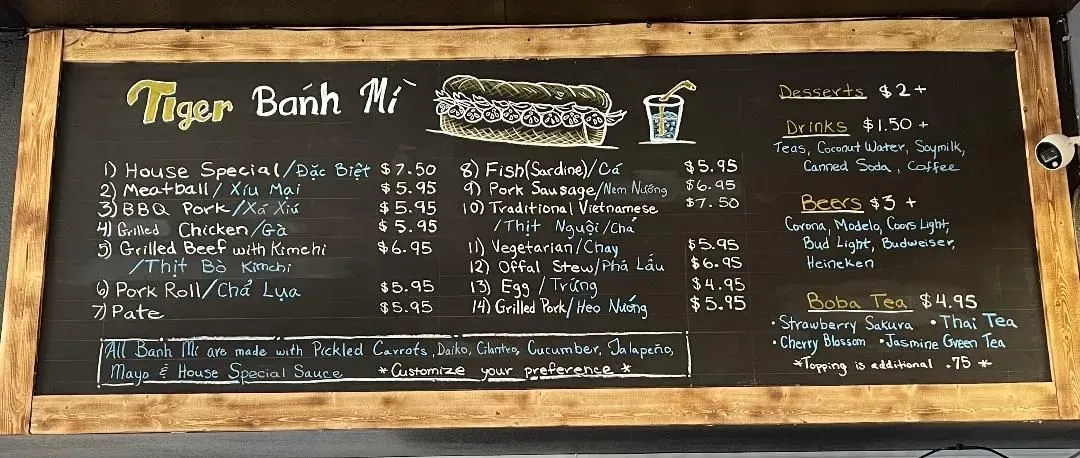 Tiger Bánh Mì
1) House Special/Đặc Biệt $7.50
2) Meatball/Xíu Mại $5.95
3) BBQ Pork/Xá Xíu $5.95
4) Grilled Chicken/Gà $5.95
5) Grilled Beef with Kimchi $6.95
/Thịt Bò Kimchi
6) Pork Roll/Chả Lụa $5.95
7) Pate $5.95
8) Fish(Sardine)/Cá $5.95
9) Pork Sausage/Nem Nướng $6.95
10) Traditional Vietnamese $7.50
/Thịt Nguội/Chả
11) Vegetarian/Chay $5.95
12) Offal Stew/Phá Lấu $6.95
13) Egg/Trứng $4.95
14) Grilled Pork/Heo Nướng $5.95
All Banh Mi are made with Pickled Carrots, Daiko, Cilantro, Cucumber, Jalapeño,
Mayo & House Special Sauce *Customize your preference*
Desserts $2+
Drinks $1.50+
Teas, Coconut Water, Soymilk,
Canned Soda, Coffee
Beers $3+
Corona, Modelo, Coors Light,
Bud Light, Budweiser,
Heineken
Boba Tea $4.95
•Strawberry Sakura •Thai Tea
•Cherry Blossom •Jasmine Green Tea
*Topping is additional .75*